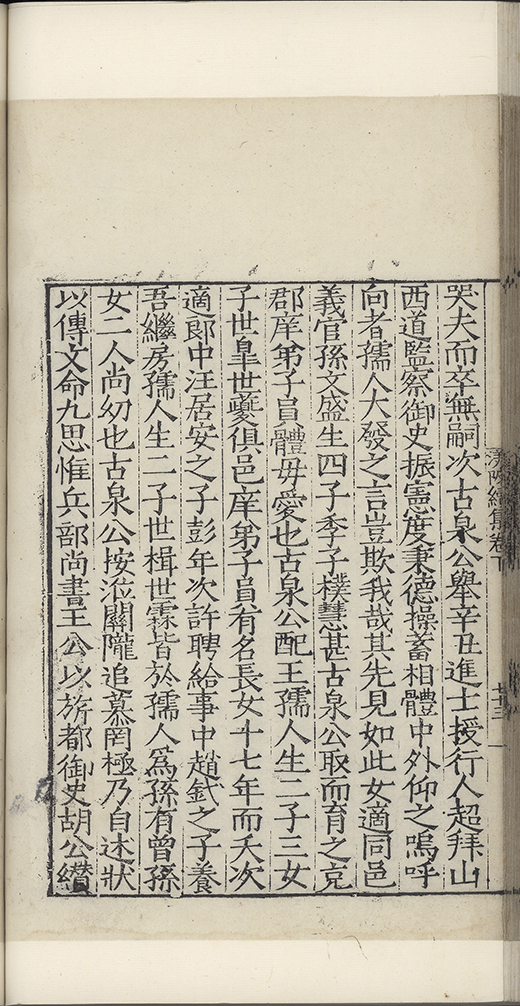 哭夫而卒無嗣次古泉公舉辛丑進士授行人超拜山
西道監察御史振憲度秉德操蓄相體中外仰之嗚呼
向者孺人大發之言豈欺我哉其先見如此女適同邑
義官孫文盛生四子季子樸慧甚古泉公取而育之充
郡庠弟子員體母愛也古泉公配王孺人生二子三女
子世皐世夔俱邑庠弟子員有名長女十七年而夭次
適郎中汪居安之子彭年次許聘給事中趙釴之子養
吾繼房孺人生二子世楫世霖皆於孺人爲孫有曾孫
女二人尚幼也古泉公按涖關隴追慕罔極乃自述狀
以傳文命九思惟兵部尚書王公以旂都御史胡公纘
渼陂續集卷下